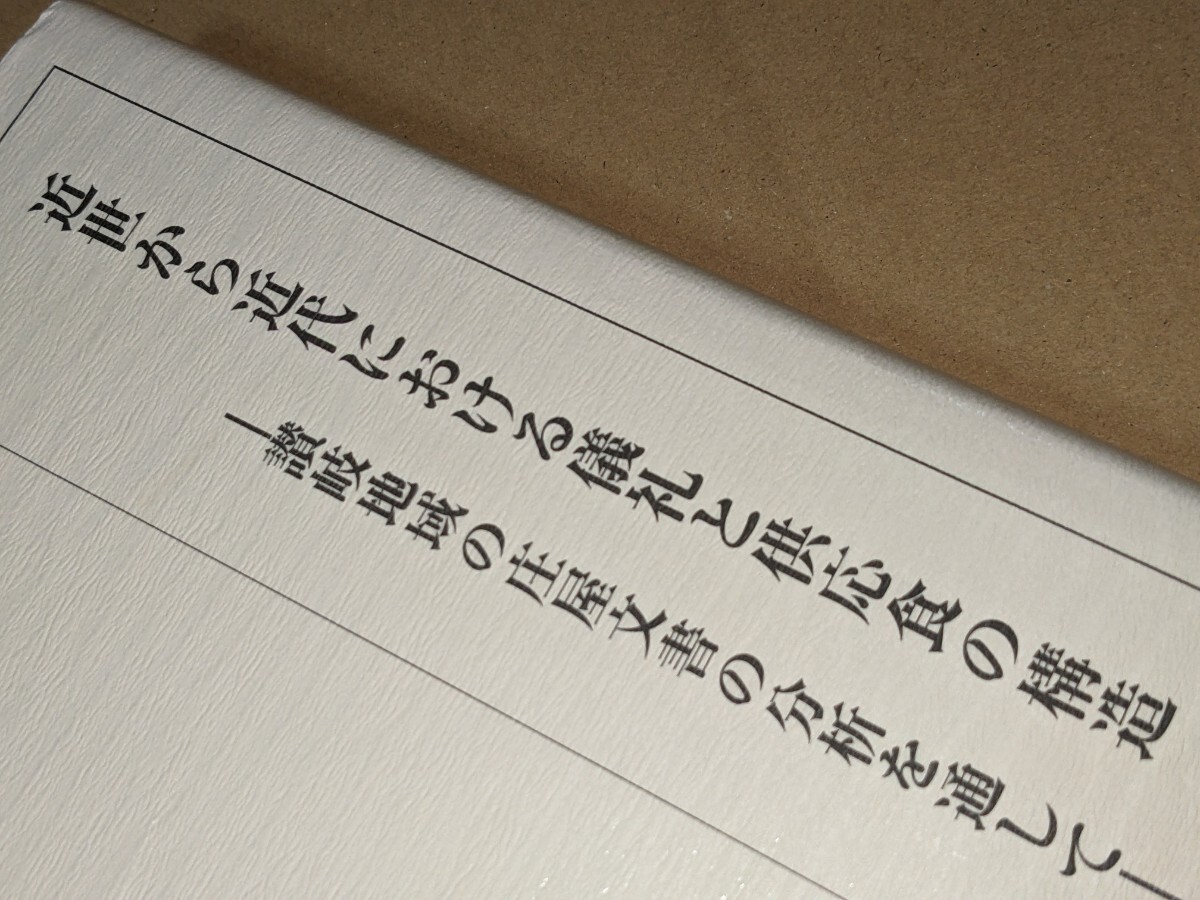 近世から近代における儀礼と供応食の構造
―讃岐地域の庄屋文書の分析を通して―